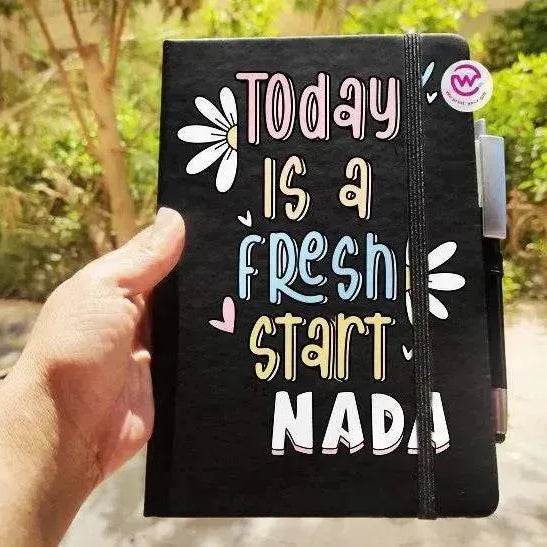 TODAY
IS a
FRESH
START
NADA